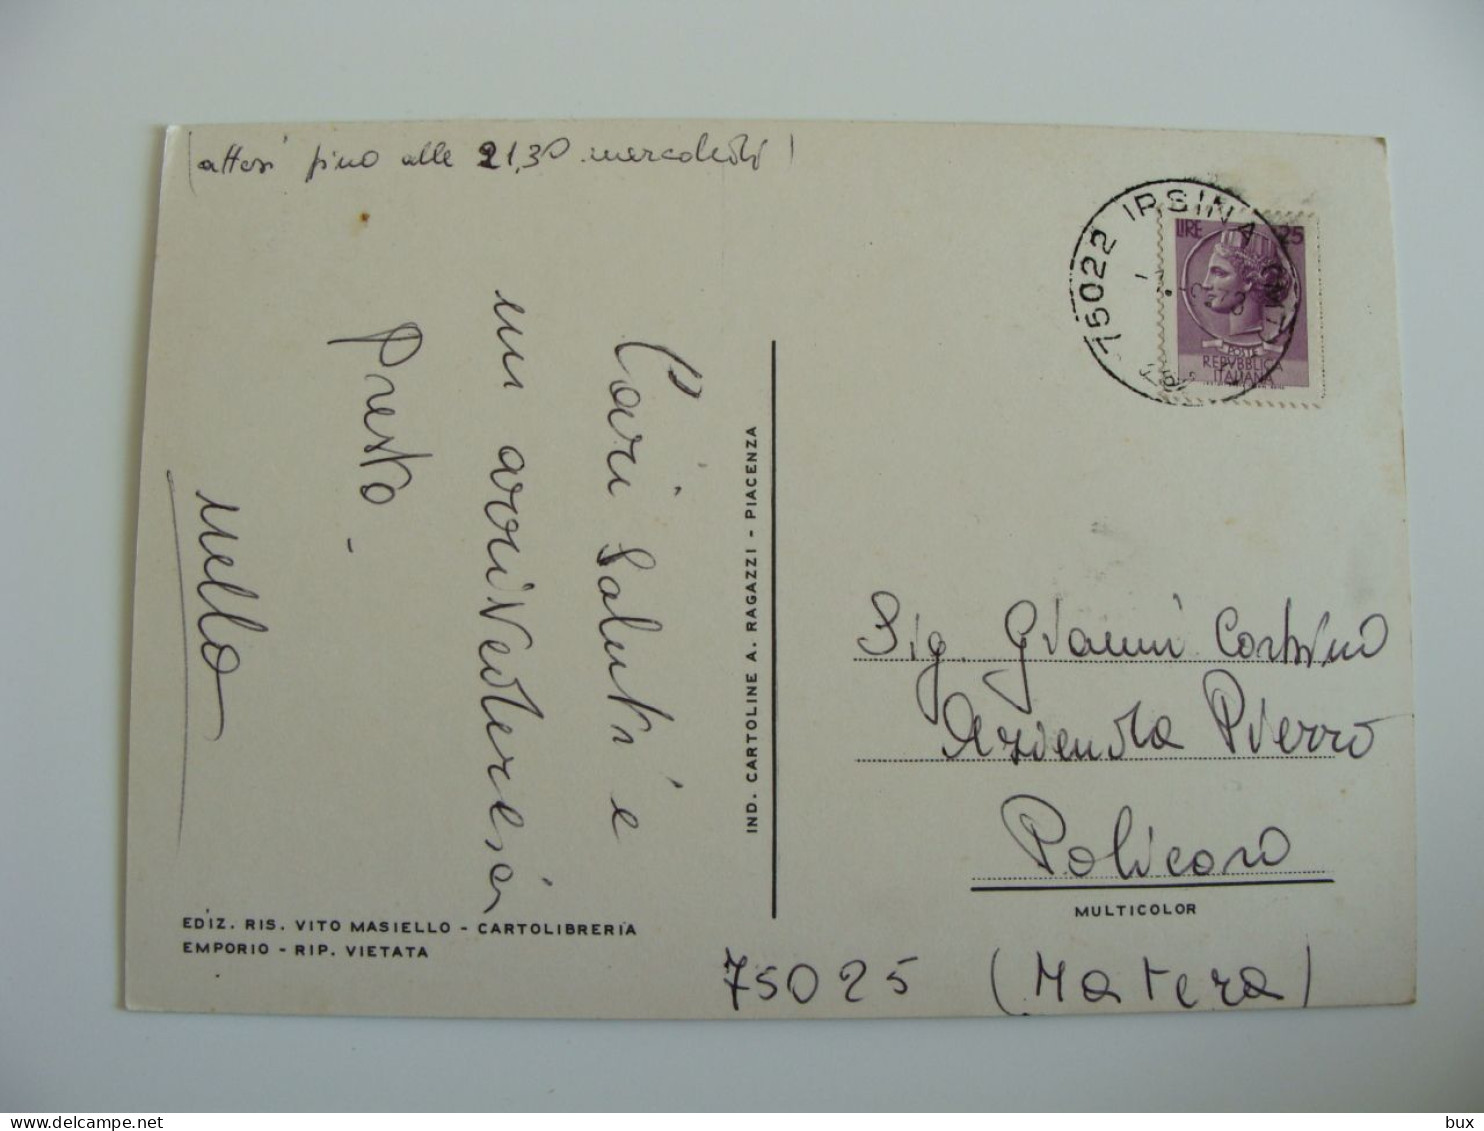 (attesi fino alle 21,30 mercoledì)
Cari Saluti e
un arrivederci a
presto -
nello
IND. CARTOLINE A. RAGAZZI - PIACENZA
EDIZ. RIS. VITO MASIELLO - CARTOLIBRERIA
EMPORIO - RIP. VIETATA
75022 IRSINA
LIRE 25
POSTE
REPVBBLICA
ITALIANA
Sig. Gianni
Azienda Pierro
Policoro
MULTICOLOR
75025 (Matera)
bux